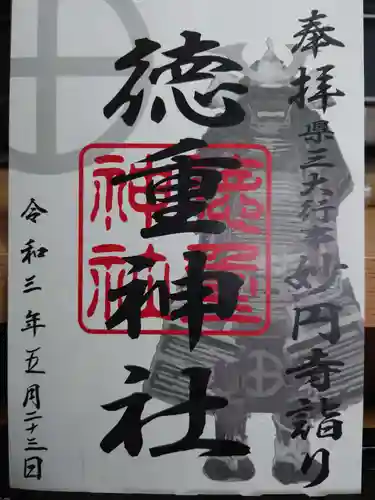 奉拝
県三大行事 妙円寺詣り
徳重神社
徳重神社
令和三年五月二十三日